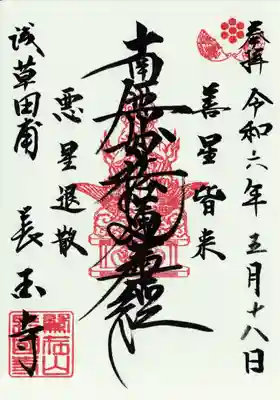 奉拝 令和六年五月十八日
善星皆来
南無妙法蓮華経
悪星退散
浅草田甫 長玉寺